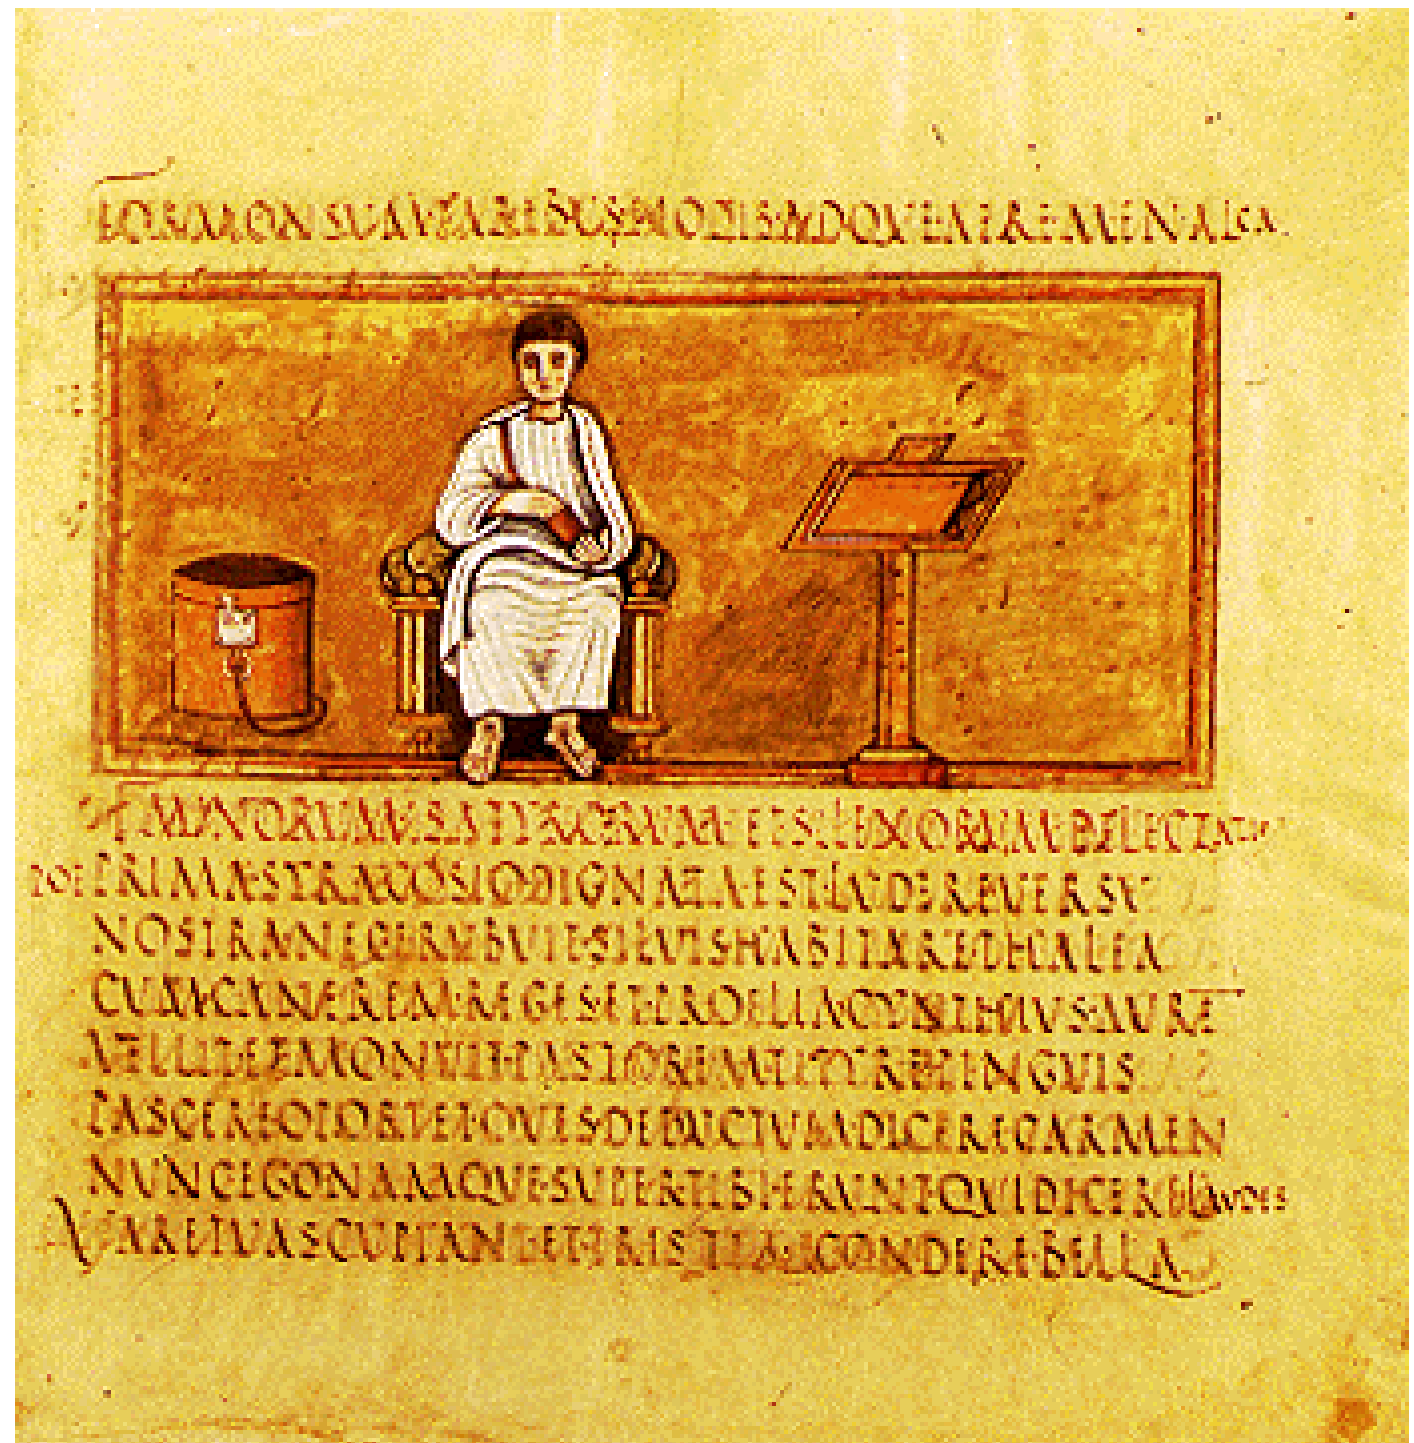 FORMONSVM·PARIBVS·NODIS·ADQVE·AERE·MENALCA
FAVNORVM·SATYRORVM·ET·SILENORVM·DELECTATIO
POE PRIMA·SYRACOSIO·DIGNATA·EST·LVDERE·VERSV
NOSTRA·NEC·ERVBVIT·SILVIS·HABITARE·THALEA
CVM·CANEREM·REGES·ET·PROELIA·CYNTHIVS·AVRE
VELLIT·ET·AMONVIT·PASTOREM·TITYRE·PINGVIS
PASCERE·OPORTET·OVES·DEDVCTVM·DICERE·CARMEN
NVNC·EGO·NAMQVE·SVPER·TIBI·ERVNT·QVI·DICERE·LAVDES
VARE·TVAS·CVPIANT·ET·TRISTIA·CONDERE·BELLA